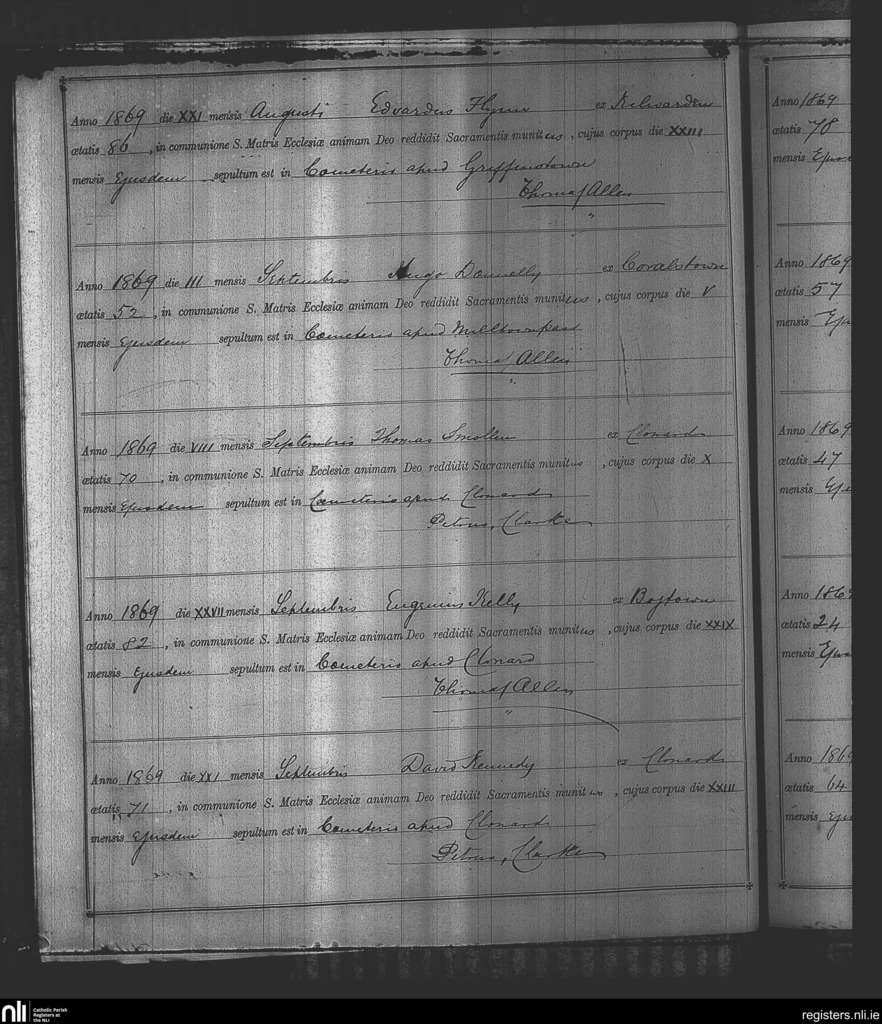 Anno 1869 die XXI mensis Augusti Edvardus Flynn ex Kilwarden
ætatis 86, in communione S. Matris Ecclesiæ animam Deo reddidit Sacramentis munitus, cujus corpus die XXIII
mensis Ejusdem sepultum est in Cœmeterio apud Griffinstown
Thomas Allen
Anno 1869 die III mensis Septembris Hugo Donnelly ex Coralstown
ætatis 52, in communione S. Matris Ecclesiæ animam Deo reddidit Sacramentis munitus, cujus corpus die V
mensis Ejusdem sepultum est in Cœmeterio apud Milltownpass
Thomas Allen
Anno 1869 die VIII mensis Septembris Thomas Smollen ex Clonard
ætatis 70, in communione S. Matris Ecclesiæ animam Deo reddidit Sacramentis munitus, cujus corpus die X
mensis Ejusdem sepultum est in Cœmeterio apud Clonard
Petrus, Clarke
Anno 1869 die XXVII mensis Septembris Eugenius Kelly ex Bogtown
ætatis 82, in communione S. Matris Ecclesiæ animam Deo reddidit Sacramentis munitus, cujus corpus die XXIX
mensis Ejusdem sepultum est in Cœmeterio apud Clonard
Thomas Allen
Anno 1869 die XXI mensis Septembris David Kennedy ex Clonard
ætatis 71, in communione S. Matris Ecclesiæ animam Deo reddidit Sacramentis munitus, cujus corpus die XXIII
mensis Ejusdem sepultum est in Cœmeterio apud Clonard
Petrus, Clarke
Anno 1869
ætatis 78
mensis
Anno 1869
ætatis 57
mensis
Anno 1869
ætatis 47
mensis
Anno 1869
ætatis 24
mensis
Anno 1869
ætatis 64
mensis
nli Catholic Parish
Registers at
the NLI
registers.nli.ie